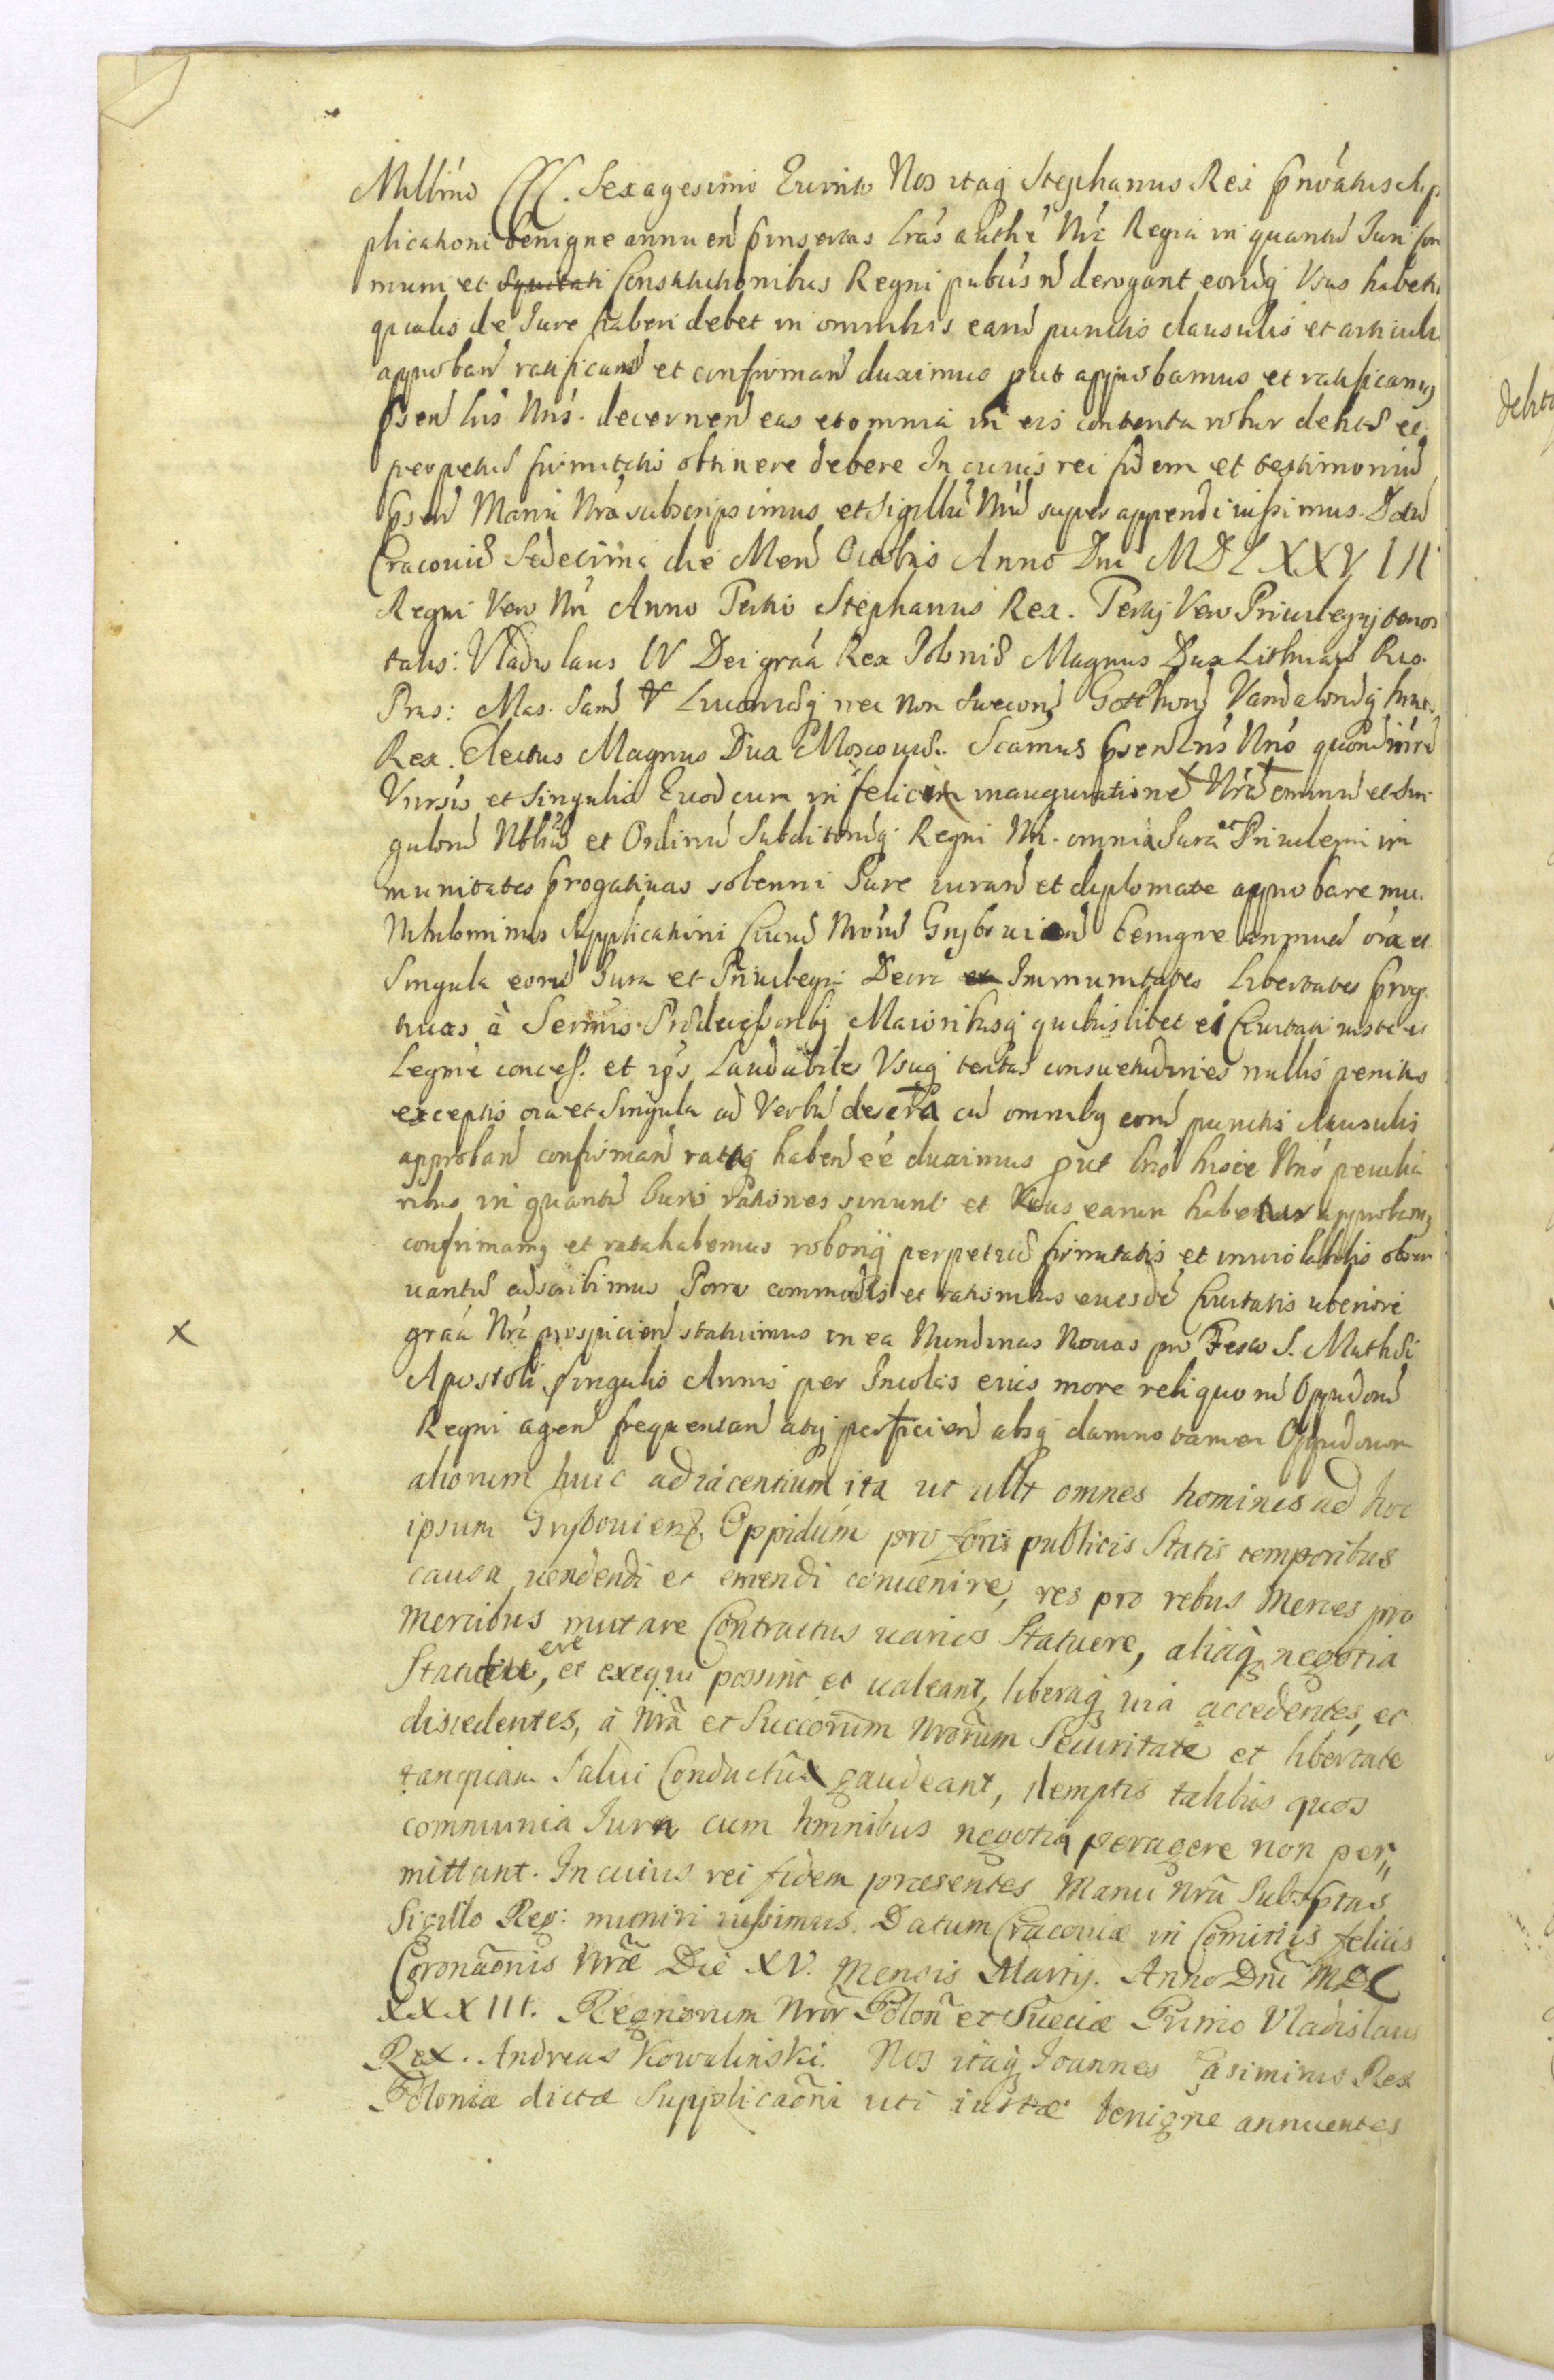 Millimo CCC. Sexagesimo Quinto Nos itaq Stephanus Rex pnoatis Sup
plicationi benigne annuen pinsertas Lras authe Nra Regia in quantu Juri Com
muni et Equitati Constitutionibus Regni pubcis n derogant eorudq Usus habetur
qualis de Jure haberi debet in omnibus earu punctis clausulis et articulis
approban ratifican et confirman duximus put approbamus et ratificamq
psen lris Nris. decernen eas et omnia in eis contenta robur debitæ et
perpetuæ firmitatis obtinere debere In cuius rei fidem et testimoniu
psen Manu Nra subscripsimus et Sigillu Nru super appendi iussimus. Datu
Cracouiæ Sedecima die Mens Octobris Anno Dni MDLXXVIII
Regni Vero Nri Anno Tertio Stephanus Rex. Tertij Vero Priuilegij tenor
talis: Vladislaus IV Dei graa Rex Poloniæ Magnus Dux Lithuan Rus.
Prus: Mas. Sam Liuoniæq nec non Suecorq Gotthorq Vandalorudq hær.
Rex. Electus Magnus Dux Moscouiæ. Scamus psen Lris Nris quoru interē
Vnrsis et Singulis Quod cum in felici inauguratione Nra omniu et Sin
guloru Nbliu et Ordinu Subditorudq Regni Nri. omnia Jura et Priuilegia im
munitates progatiuas solenni Jure iuran et diplomate approbaremus
Nihilominus Supplicationi Ciuiu Nroru Grybouien benigne annuen oia et
Singula eoru Jura et Priuilegia Decra et Immunitates Libertates prog
tiuas à Sermis Prædecessoribq Maioribusq quibuslibet ei Ciuitati iuste et
Legme concess. et ips Laudabiles Usuq tentas consuetudines nullis penitus
exceptis oia et Singula ad Verbu descrta cu omnibq eoru punctis clausulis
approban confirman rataq haben ee duximus put lris hisce Nris peculia
ribus in quantu Juris rationes sinunt et Usus earum habetur approbamq
confirmamq et rata habemus robonq perpetuæ firmitatis et inuiolabilis obser
uantiæ adscribimus Porro commodis et rationibus eiusde Ciuitatis uteriori
graa Nra prospicien statuimus in ea Nundinas Nouas pro Festo S. Mathæi
Apostoli Singulis Annis per Incolas eius more reliquoru Oppidoru
Regni agen frequentan atq perficien absq damno tamen Oppidorum
aliorum huic adiacentium ita ut ullt omnes homines ad hoc
ipsum Grybouienz Oppidum pro foris publicis Statis temporibus
causa uendendi et emendi conuenire, res pro rebus Merces pro
Mercibus mutare Contractus uarios Statuere, aliaq negotia
Statuere, et exequi possint et ualeant, liberaq uia accedentes, et
discedentes, à Nrã et Succorum Nrorum Securitate et libertate
tanquam Salui Conductus gaudeant, demptis talibus quos
communia Jura cum hominibus negotia peragere non per„
mittant. In cuius rei fidem præsentes Manu Nrã Subscptas
Sigillo Reg: muniri iussimus. Datum Cracouiæ in Comitiis felicis
Coronãonis Nræ Die XV. Mensis Martij. Anno Dni MDC
XXXIII. Regnorum Nror Polon et Sueciæ Primo Vladislaus
Rex. Andreas Kowalinski. Nos itaq Joannes Casimirus Rex
Poloniæ dictæ Supplicaõni uti iustæ benigne annuentes
X